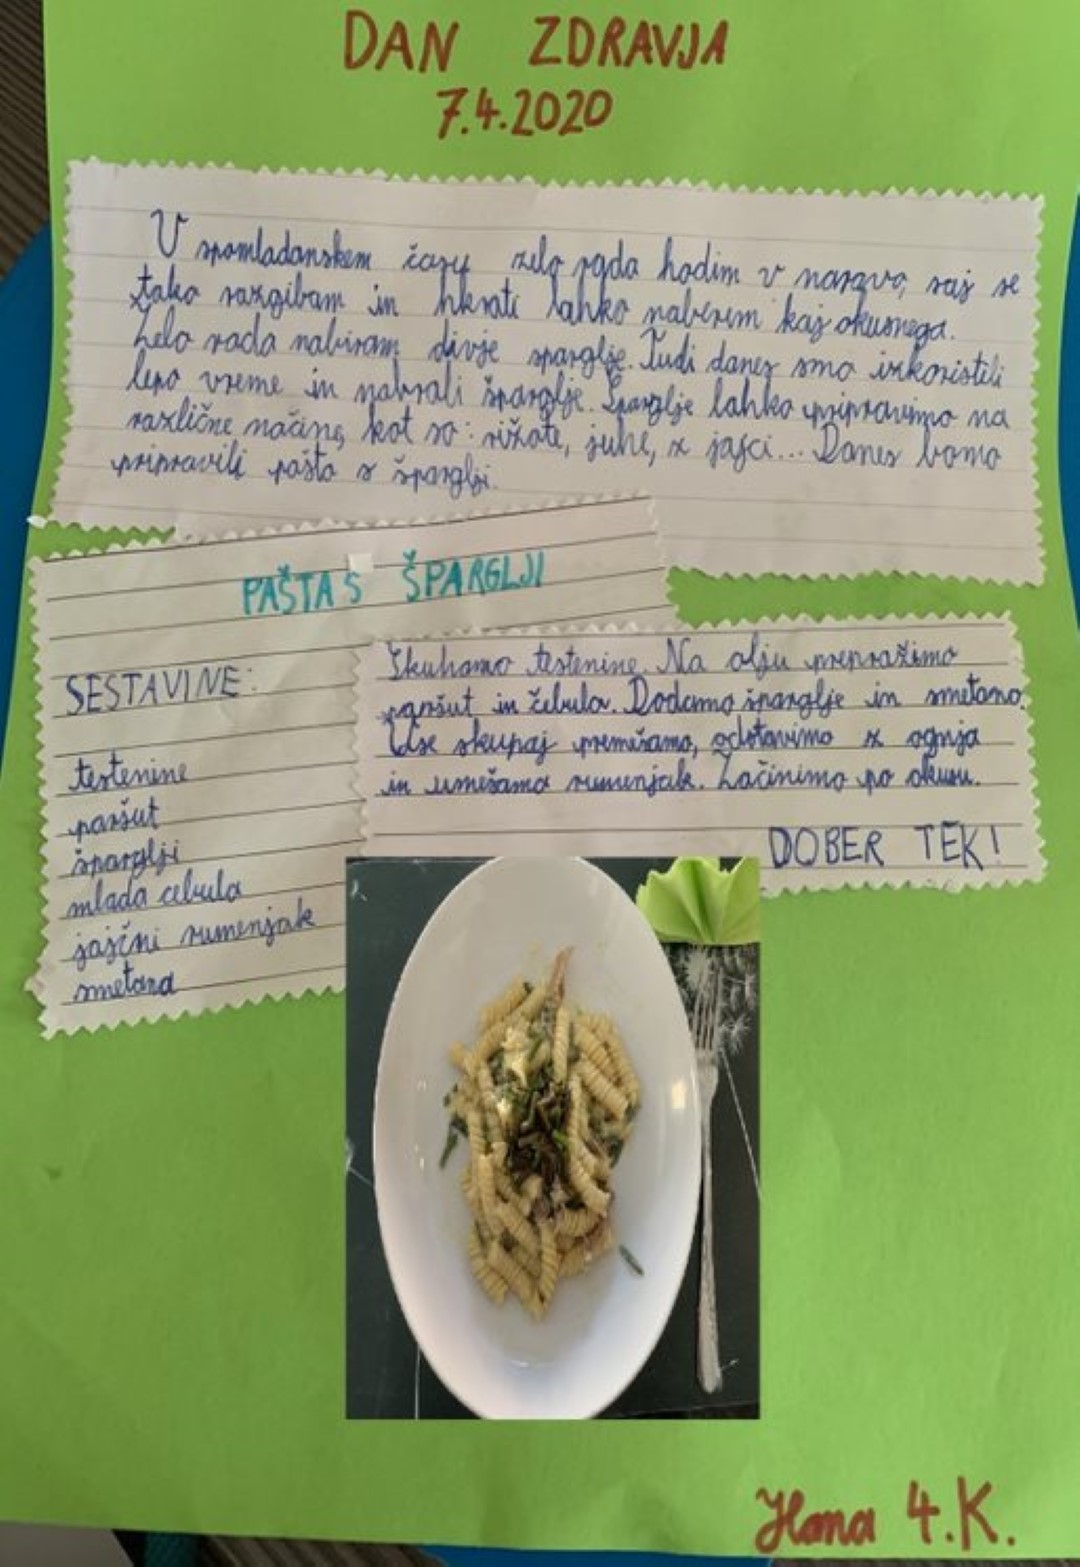 DAN ZDRAVJA
7.4.2020
V spomladanskem času zelo rada hodim v naravo, saj se
tako razgibam in hkrati lahko naberem kaj okusnega.
Zelo rada nabiram divje šparglje. Tudi danes smo izkoristili
lepo vreme in nabrali šparglje. Šparglje lahko pripravimo na
različne načine, kot so: rižote, juhe, z jajci... Danes bomo
pripravili pašto s šparglji.
PAŠTA S ŠPARGLJI
SESTAVINE:
testenine
paršut
šparglji
mlada cebula
jajčni rumenjak
smetana
Skuhamo testenine. Na olju prepražimo
paršut in žebula. Dodamo šparglje in smetano.
Vse skupaj premešamo, odstavimo z ognja
in umešamo rumenjak. Začinimo po okusu.
DOBER TEK!
Hana 4.K.